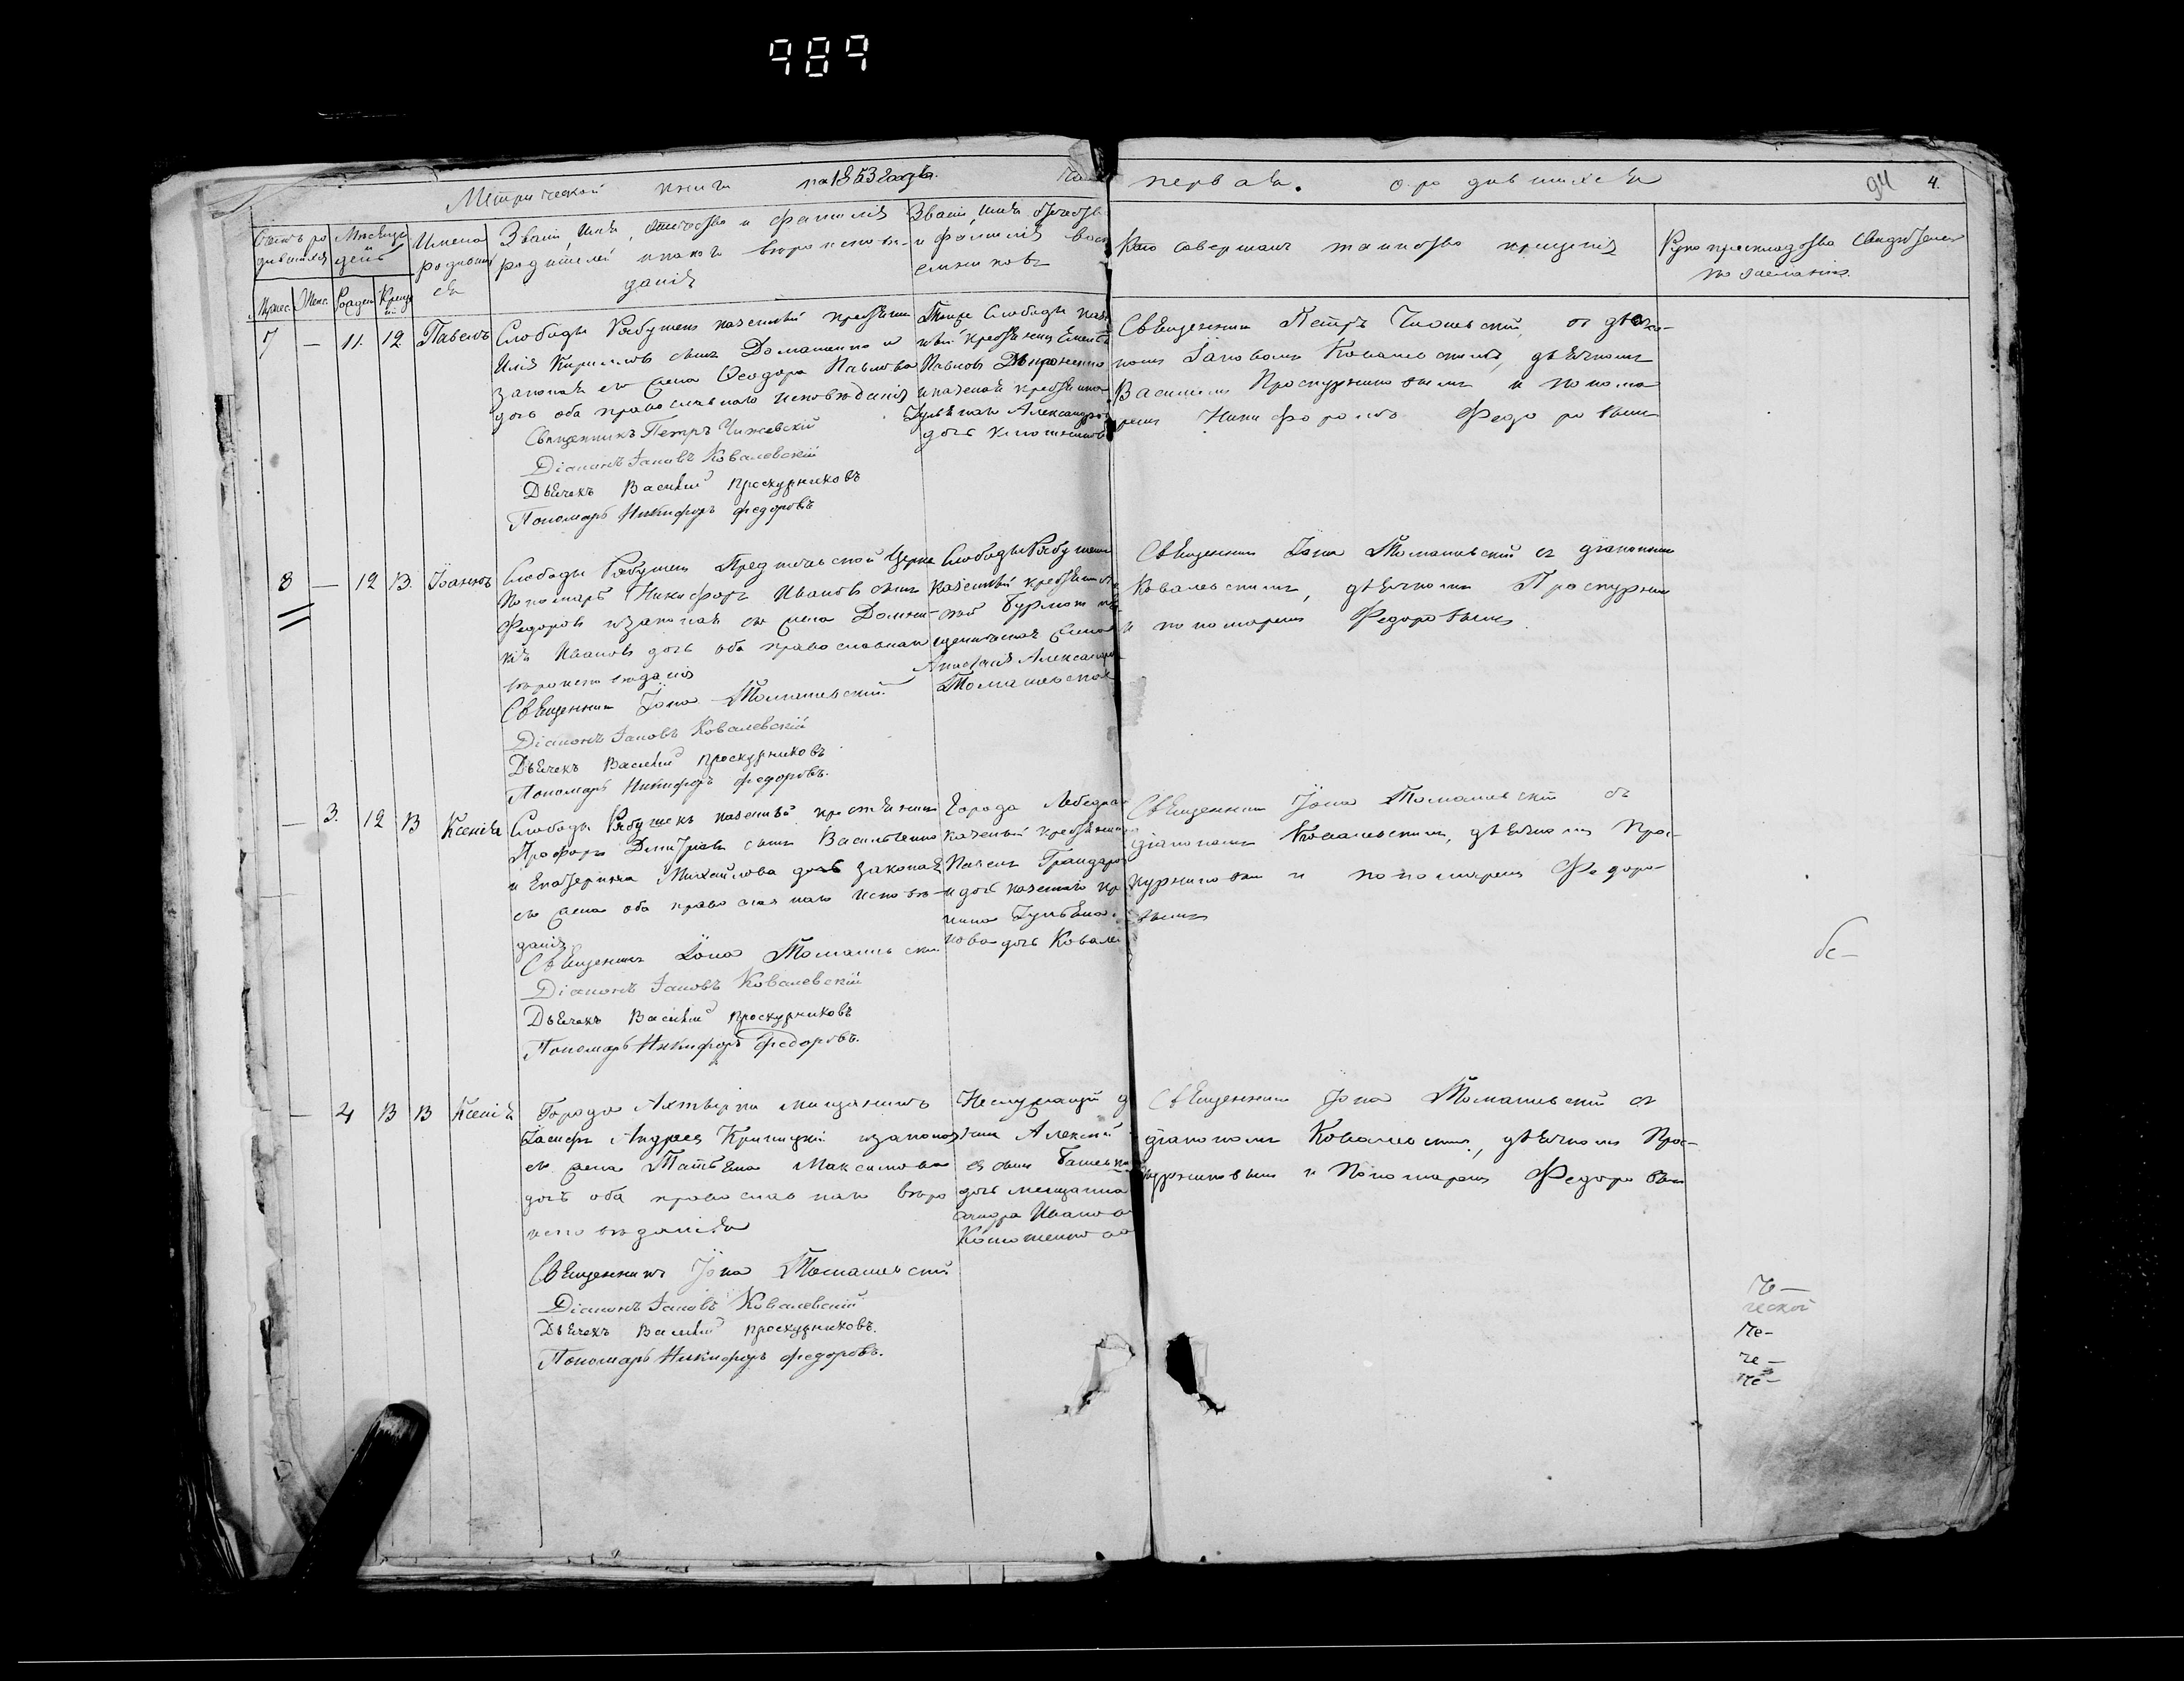 989
Метрической книги на 1853 годъ. Ча
первая. о родившихся
94 4.
Счетъ ро
дившихся
Мѣсяцъ
и
день
Имена
родивши
ся
Званіе, имя, отчество и фамилія
родителей и какого вѣроисповѣ-
данія
Званіе, имя отчество
и фамилія восп
емниковъ
Кто совершалъ таинство крещенія
Рукоприкладство свидѣтелей
по желанію.
Мужес. Женс. Рожден Крещ
7 — 11. 12. Павелъ
Слободы Рябушекъ казенный крестьянин
Илія Кирилловъ сынъ Доманенко и
законная его жена Ѳеодора Павлова
дочь оба православнаго исповѣданія
Священникъ Петръ Чижевскій
Діаконъ Іаковъ Ковалевскій
Дьячекъ Василій Проскурниковъ
Пономарь Никифоръ Федоровъ
Тоже Слободы каз
ный крестьянин
Павловъ
и казенной крестьянина
Александров
дочь
Священник Петръ Чижевский, съ діако-
номъ Іаковомъ Ковалевскимъ, дьячкомъ
Василіемъ Проскурниковымъ и понома
ремъ Никифоромъ Федоровымъ
8 — 12 13. Іоаннъ
Слободы Рябушекъ Предтечевской Церкв
Пономарь Никифоръ Ивановъ сынъ
Федоровъ и законная его жена Домни-
кія Иванова дочь оба православнаго
вѣроисповѣданія
Священникъ Іона Томашевский
Діаконъ Іаковъ Ковалевскій
Дьячекъ Василій Проскурниковъ
Пономарь Никифоръ Федоровъ.
Слободы Рябушекъ
казенный крестьянин
Александр
Томашевская
Священник Іона Томашевский съ діакономъ
Ковалевскимъ, дьячкомъ Проскурник
и пономаремъ Федоровымъ
— 3. 12 13 Ксенія
Слободы Рябушекъ казенный крестьянин
Дмитріевъ сынъ Васильченко
и Екатерина Михайлова дочь законная
его жена оба православнаго исповѣ-
данія
Священникъ Іона Томашевский
Діаконъ Іаковъ Ковалевскій
Дьячекъ Василій Проскурниковъ
Пономарь Никифоръ Федоровъ.
Города Лебедина
казенный крестьянин
и дочь казеннаго кр
нина
нова дочь Ковале
Священник Іона Томашевский съ
діакономъ Ковалевскимъ, дьячкомъ Прос-
курниковым и пономаремъ Федоро-
вымъ
бе-
— 4 13 13 Ксенія
Города Ахтырки мищанинъ
Іосифъ Андреевъ Крицкій и законная
его жена Татьяна Максимова
дочь оба православнаго вѣро
исповѣданія
Священникъ Іона Томашевский
Діаконъ Іаковъ Ковалевскій
Дьячекъ Василій Проскурниковъ.
Пономарь Никифоръ Федоровъ.
Неслужащій д
Алексій
дочь мещанина
Иванова
Священник Іона Томашевский съ
діакономъ Ковалевским, дьячкомъ Прос-
курниковым и Пономаремъ Федоровым
че-
ческой
че-
че-
че-